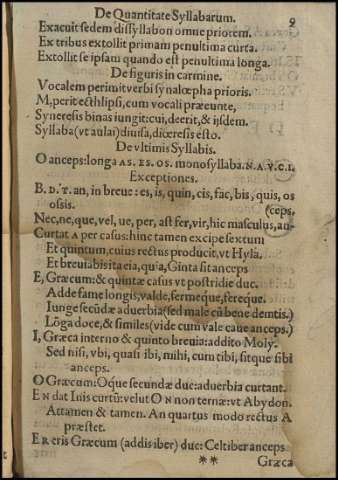 De Quantitate Syllabarum. 9
Exacuit sedem dissyllabon omne priorem.
Ex tribus extollit primam penultima curta.
Extollit se ipsam quando est penultima longa.
De figuris in carmine.
Vocalem perimit verbi synalœpha prioris.
M, perit ecthlipsi, cum vocali præeunte,
Syneresis binas iungit: cui, deerit, & ijsdem.
Syllaba (vt aulai) diuisa, diceresis esto.
De vltimis Syllabis.
O anceps: longa AS. ES. OS. monosyllaba. N.A.V.C.I.
Exceptiones.
B. D. T. an, in breue: es, is, quin, cis, fac, bis, quis, os
ossis. (ceps,
Nec, ne, que, vel, ue, per, ast fer, vir, hic masculus, an-
Curtat A per casus: hinc tamen excipe sextum
Et quintum, cuius rectus producit, vt Hylâ.
Et breuia bis ita eia, quia, Ginta sit anceps
E, Græcum: & quintæ casus vt postridie duc.
Adde fame longis, valde, fermeque, fereque.
Iunge secūdæ aduerbia (sed male cū bene demtis.)
Lōga doce, & similes (vide cum vale caue anceps.)
I, Græca interno & quinto breuia: addito Moly.
Sed nisi, vbi, quasi ibi, mihi, cum tibi, sitque sibi
anceps.
O Græcum: Oque secundæ duc: aduerbia curtant.
EN dat Inis curtū: velut ON non ternæ: vt Abydon.
Attamen & tamen. An quartus modo rectus A
præstet.
ER eris Græcum (addis iber) duc: Celtiber anceps
** Græca